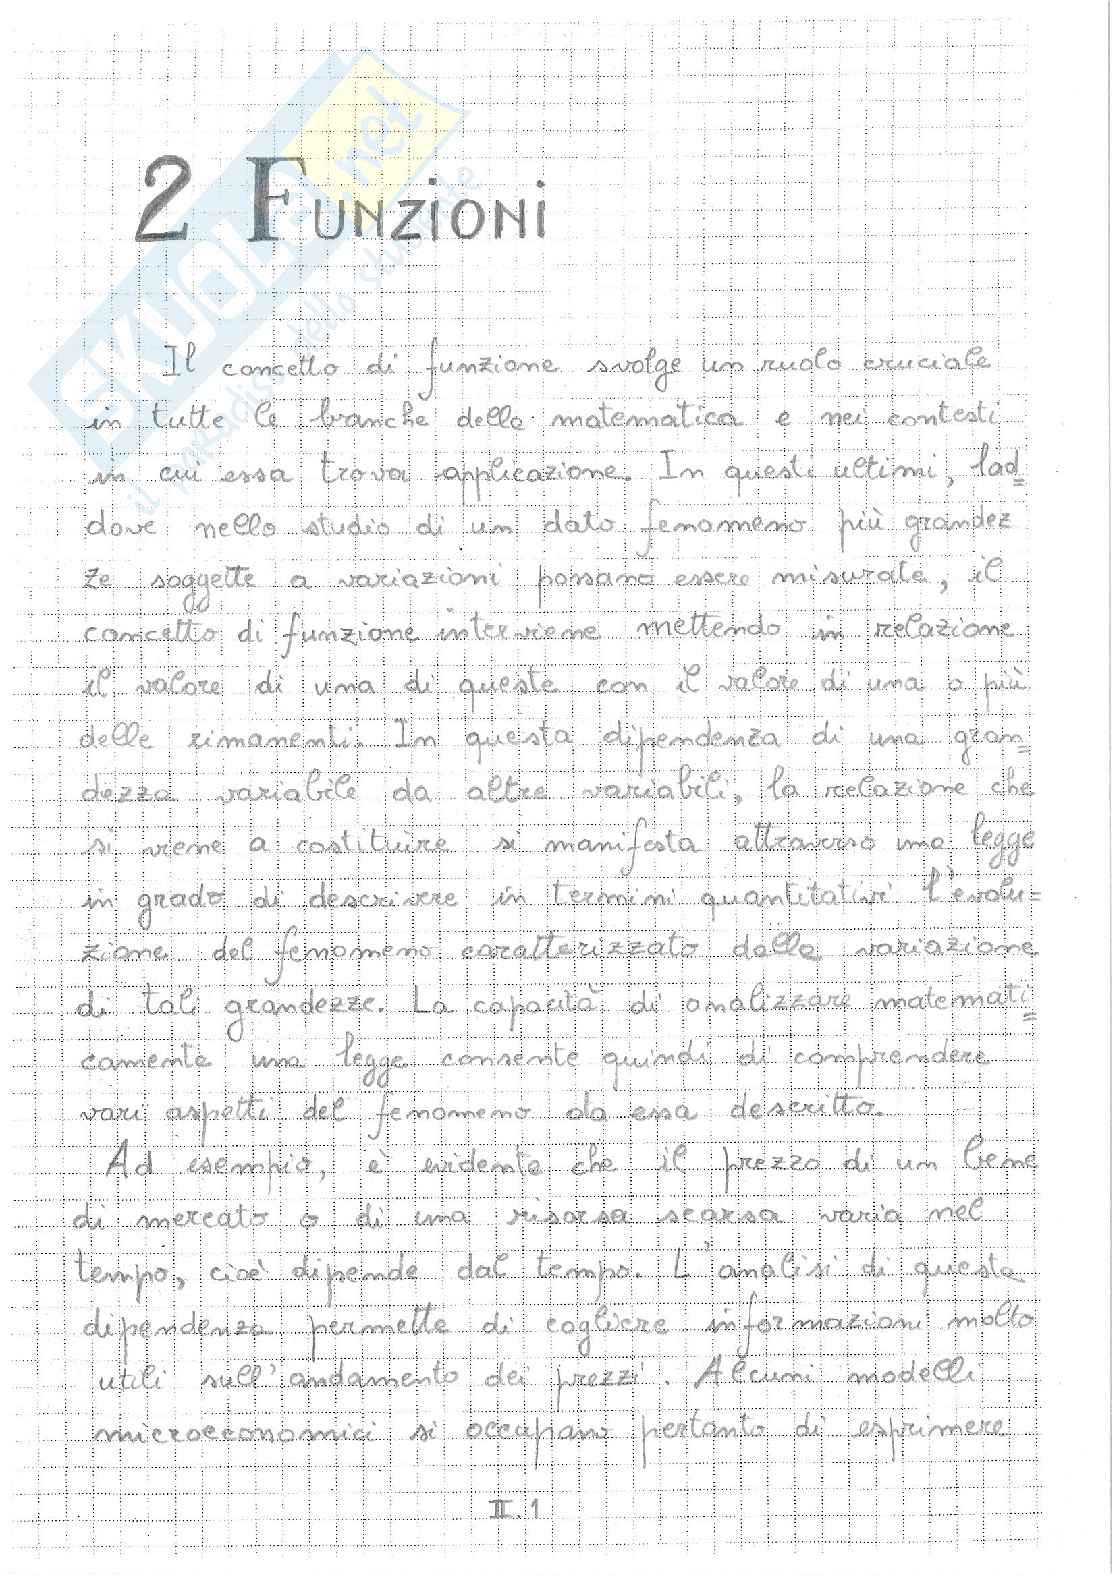 2 FUNZIONI
Il concetto di funzione svolge un ruolo cruciale
in tutte le branche della matematica e nei contesti
in cui essa trova applicazione. In questi ultimi, lad=
dove nello studio di un dato fenomeno più grandez
ze soggette a variazioni possano essere misurate, il
concetto di funzione interviene mettendo in relazione
il valore di una di queste con il valore di una o più
delle rimanenti. In questa dipendenza di una gran=
dezza variabile da altre variabili, la relazione che
si viene a costituire si manifesta attraverso una legge
in grado di descrivere in termini quantitativi l'evolu=
zione del fenomeno caratterizzato dalla variazione
di tali grandezze. La capacità di analizzare matemati=
camente una legge consente quindi di comprendere
vari aspetti del fenomeno da essa descritto.
Ad esempio, è evidente che il prezzo di un bene
di mercato o di una risorsa scarsa varia nel
tempo, cioè dipende dal tempo. L'analisi di questa
dipendenza permette di cogliere informazioni molto
utili sull'andamento dei prezzi. Alcuni modelli
microeconomici si occupano pertanto di esprimere
II.1
SKUOLA.net
il paradiso dello studente